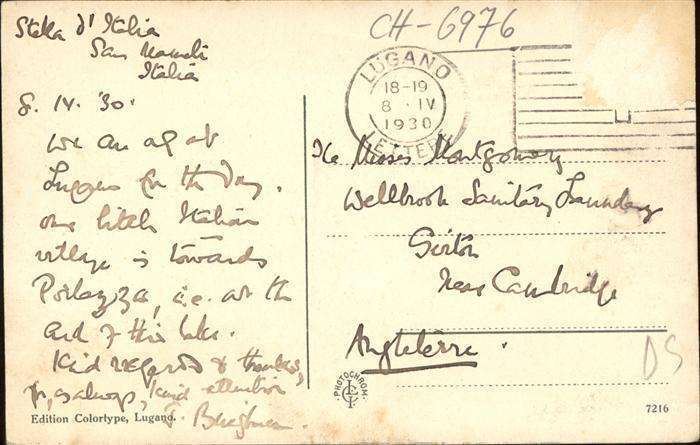 CH-6976
Stella d'Italia
San Mamete
Italia
8. IV. '30.
We are all at
Lugano for the day.
our little Italian
village is towards
Porlezza, i.e. at the
end of this lake.
Kind regards & thanks,
for, as always, kind attention
LUGANO
18-19
8 · IV
1930
LETTERE
The Misses Montgomery
Wellbrook Sanitary Laundry
Girton
Near Cambridge
Angleterre.
DS
PHOTOCHROM
Edition Colortype, Lugano.
7216